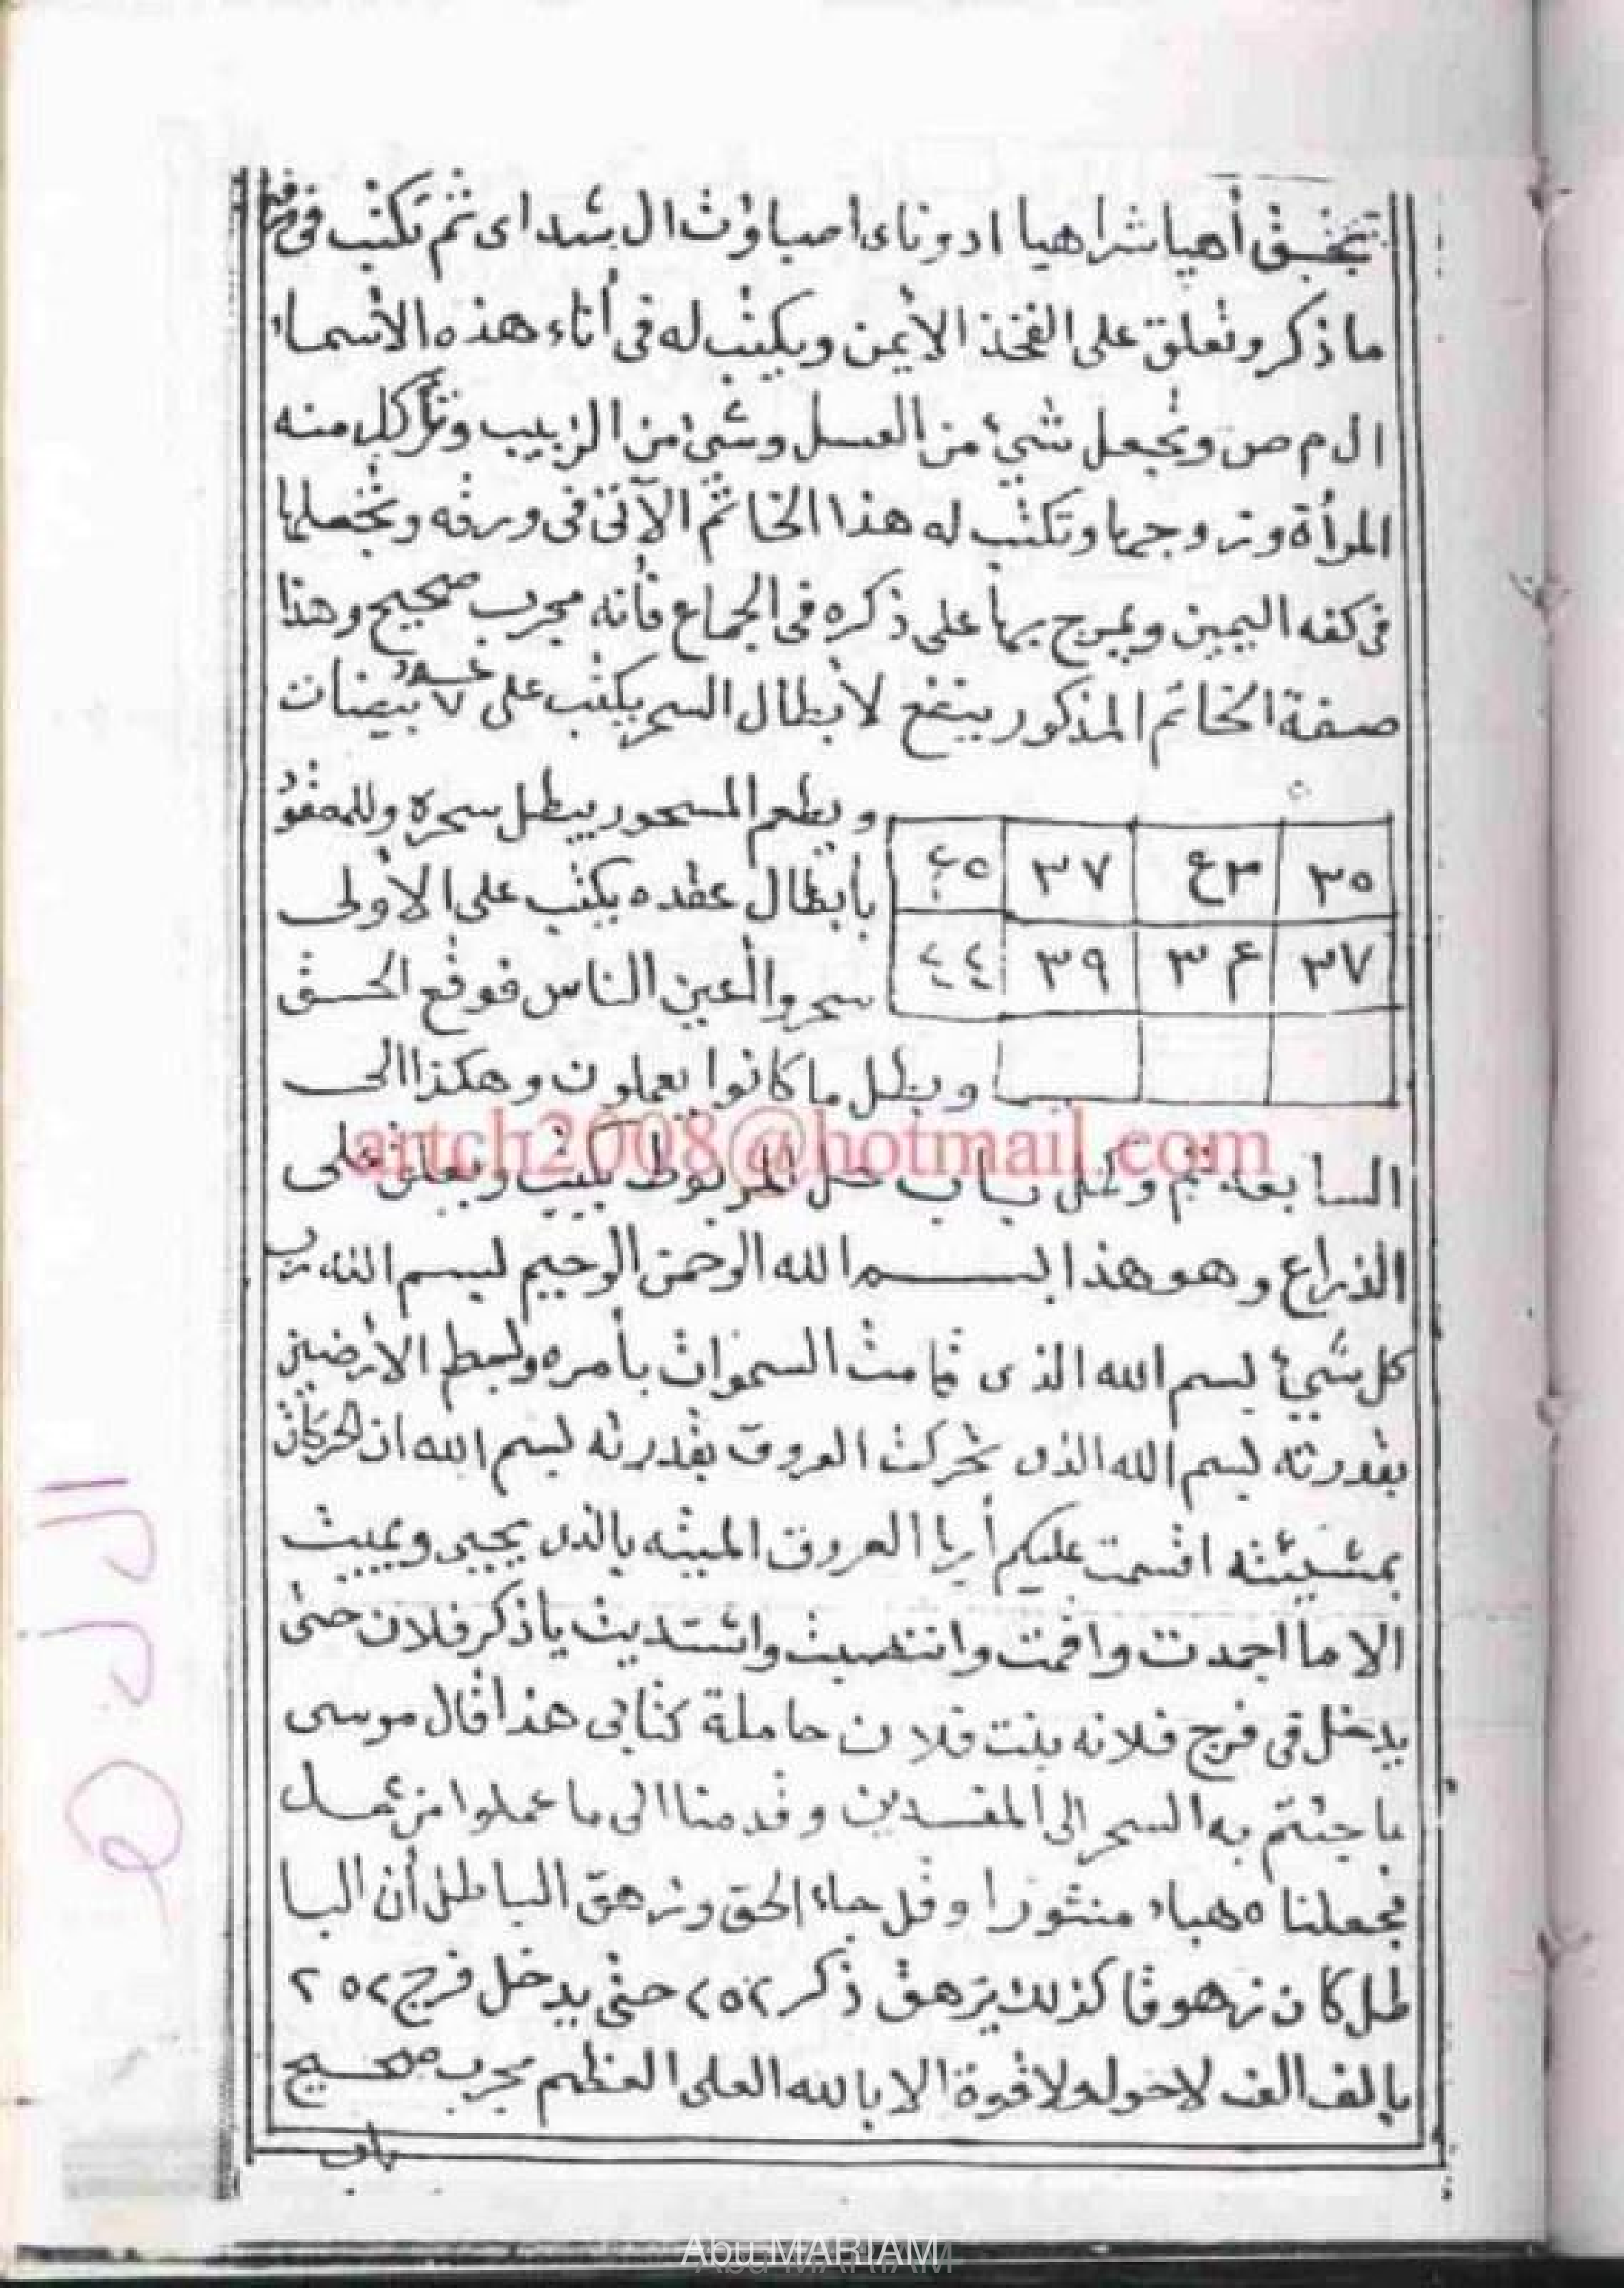 أهيا شراهيا ادوناى اصباوث ال شداى ثم تكتب فى
ما ذكر وتعلق على الفخذ الأيمن ويكتب له فى أناء هذه الأسماء
ال م ص وتجعل شئ من العسل وشئ من الزبيب وتأكل منه
المرأة وزوجها وتكتب له هذا الخاتم الآتى فى ورقه وتجعلها
فى كفه اليمين ويمرج بها على ذكره فى الجماع فأنه مجرب صحيح وهذا
صفة الخاتم المذكور ينفع لأبطال السحر يكتب على ٧ بيضات
ويطعم المسحور يبطل سحره وللمعقود
بأبطال عقده يكتب على الأولى
سحروا أعين الناس فوقع الحق
وبطل ما كانوا يعملون وهكذا الى
٣٥ ٣٤ ٣٧
٣٧ ٣٤ ٣٩ ٤٤
artch2008@hotmail.com
السابعة تم وكمل باب حل المربوط يكتب ويعلق على
الذراع وهو هذا بسم الله الرحمن الرحيم بسم الله رب
كل شئ بسم الله الذى قامت السموات بأمره وبسط الأرضين
بقدرته بسم الله الذى تحركت العروق بقدرته بسم الله
بمشيئته اقسمت عليكم أيها العروق الميته بالذى يحيى ويميت
الا ما اجمدت واقمت وانتصبت واشتديت ياذكر فلان حتى
يدخل فى فرج فلانه بنت فلان حاملة كتابى هذا قال موسى
ما جئتم به السحر الى المفسدين وقدمنا الى ما عملوا من عمل
فجعلناه هباء منثورا وقل جاء الحق وزهق الباطل أن البا
طل كان زهوقا كذلك يزهق ذكر ٢٥٢ حتى يدخل فرج ٢٥٢
بألف الف لا حول ولا قوة الا بالله العلى العظيم مجرب صحيح
باب
Abu MARIAM